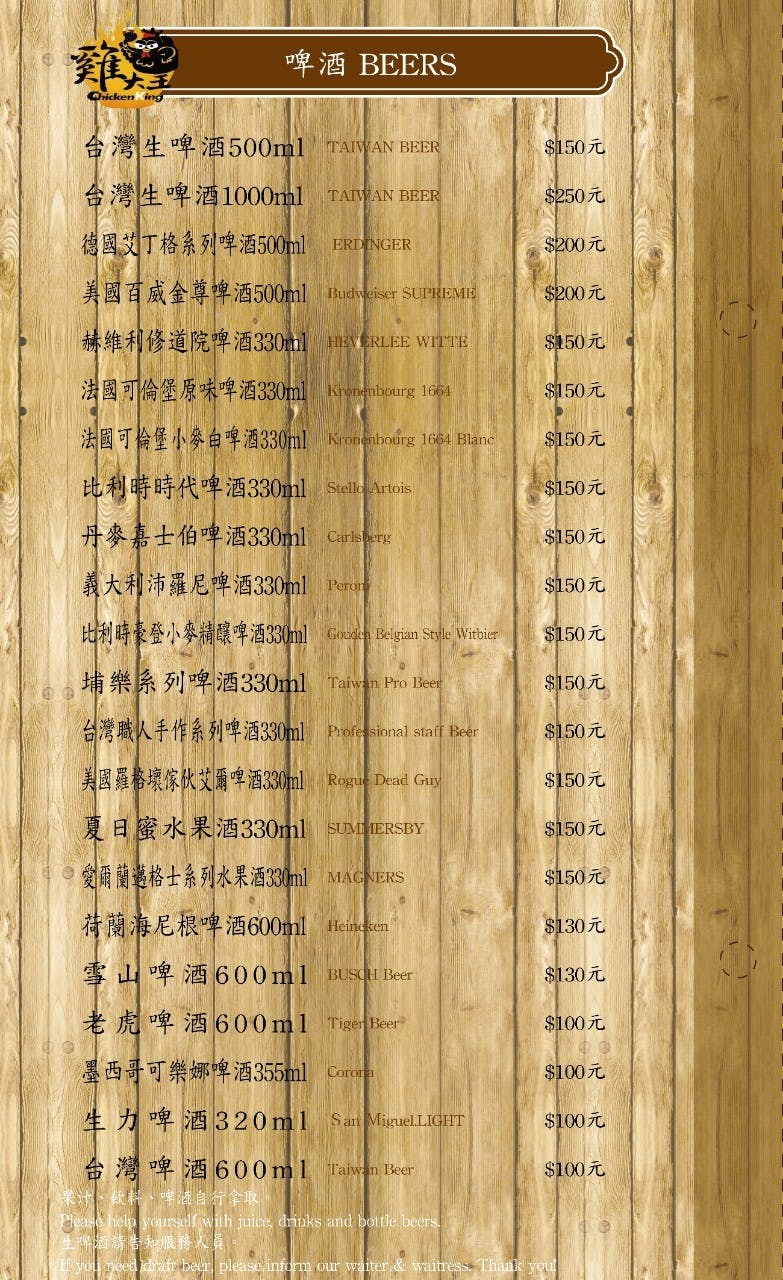 雞大王
Chicken King
啤酒 BEERS
台灣生啤酒500ml TAIWAN BEER $150元
台灣生啤酒1000ml TAIWAN BEER $250元
德國艾丁格系列啤酒500ml ERDINGER $200元
美國百威金尊啤酒500ml Budweiser SUPREME $200元
赫維利修道院啤酒330ml HEVERLEE WITTE $150元
法國可倫堡原味啤酒330ml Kronenbourg 1664 $150元
法國可倫堡小麥白啤酒330ml Kronenbourg 1664 Blanc $150元
比利時時代啤酒330ml Stello Artois $150元
丹麥嘉士伯啤酒330ml Carlsberg $150元
義大利沛羅尼啤酒330ml Peroni $150元
比利時豪登小麥精釀啤酒330ml Gouden Belgian Style Witbier $150元
埔樂系列啤酒330ml Taiwan Pro Beer $150元
台灣職人手作系列啤酒330ml Professional staff Beer $150元
美國羅格壞傢伙艾爾啤酒330ml Rogue Dead Guy $150元
夏日蜜水果酒330ml SUMMERSBY $150元
愛爾蘭邁格士系列水果酒330ml MAGNERS $150元
荷蘭海尼根啤酒600ml Heineken $130元
雪山啤酒600ml BUSCH Beer $130元
老虎啤酒600ml Tiger Beer $100元
墨西哥可樂娜啤酒355ml Corona $100元
生力啤酒320ml San Miguel.LIGHT $100元
台灣啤酒600ml Taiwan Beer $100元
果汁、飲料、啤酒自行拿取。
Please help yourself with juice, drinks and bottle beers.
生啤酒請告知服務人員。
If you need draft beer, please inform our waiter & waitress. Thank you!